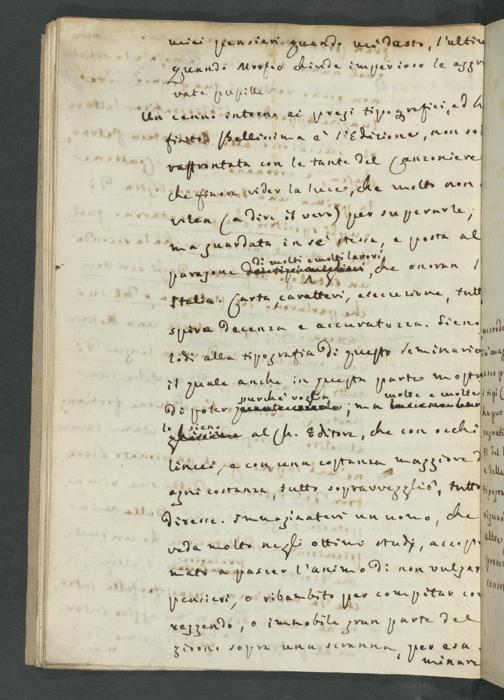 miei pensieri quando mi desto, l'ultimo
quando Morfeo chiude imperioso le aggra
vate pupille
Un cenno intorno ai pregi tipografici, ed ho
finito. Bellissima è l'Edizione, non sol
raffrontata con le tante del Canzoniere
che finora vider la luce, che molto non
vilea (a dire il vero) per superarle;
ma guardata in se stessa, e posta al
di molti e molti lavori
paragone, che onoran l'
Italia. Carta, caratteri, esecuzione, tutto
spira decenza e accuratezza. Sieno
lodi alla tipografia di questo Seminario
il quale anche in questa parte mostra
purchè voglia molte e molte
di poter; ma
lo sieno
al Ch. Editore, che con occhi
lincei, e con una costanza maggiore d
ogni costanza, tutto sopravvegliò, tutto
diresse. Immaginatevi un uomo, che
veda molto negli ottimi studj, accost
mato a pascer l'animo di non volgar
pensieri, o ribambito per compitar cor
reggendo, o immobile gran parte del
giorno sopra una scranna, per esa
minare